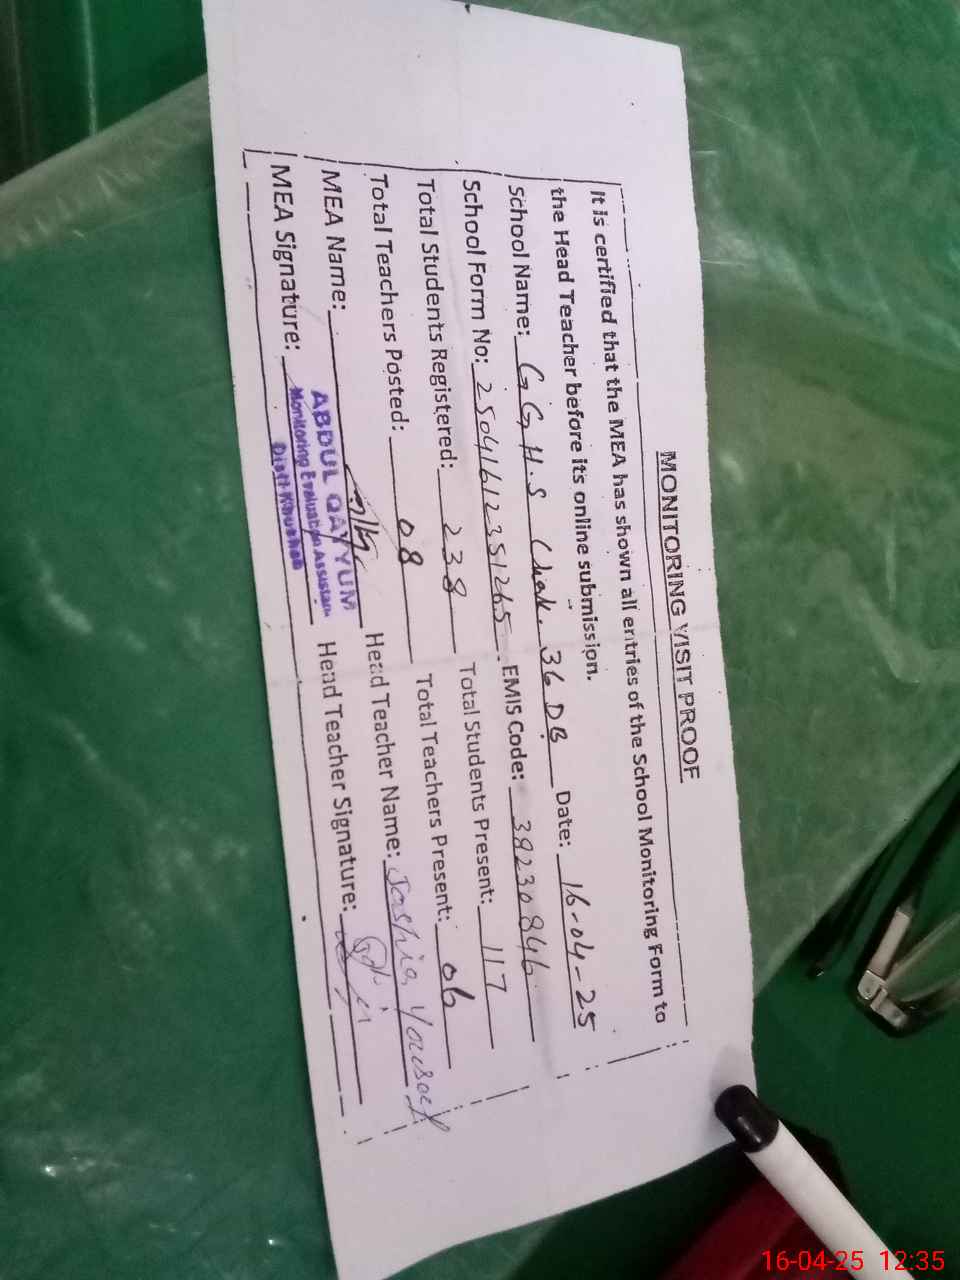 MONITORING VISIT PROOF
It is certified that the MEA has shown all entries of the School Monitoring Form to
the Head Teacher before its online submission.
School Name: G G H.S Chak. 36 DB Date: 16-04-25
School Form No: 25041612351265. EMIS Code: 38230846
Total Students Registered: 238 Total Students Present: 117
Total Teachers Posted: 08 Total Teachers Present: 06
MEA Name: Head Teacher Name: Yousaf
MEA Signature: Head Teacher Signature:
ABDUL QAYYUM
Monitoring Evaluation Assistant
Distt Khushab
16-04-25 12:35